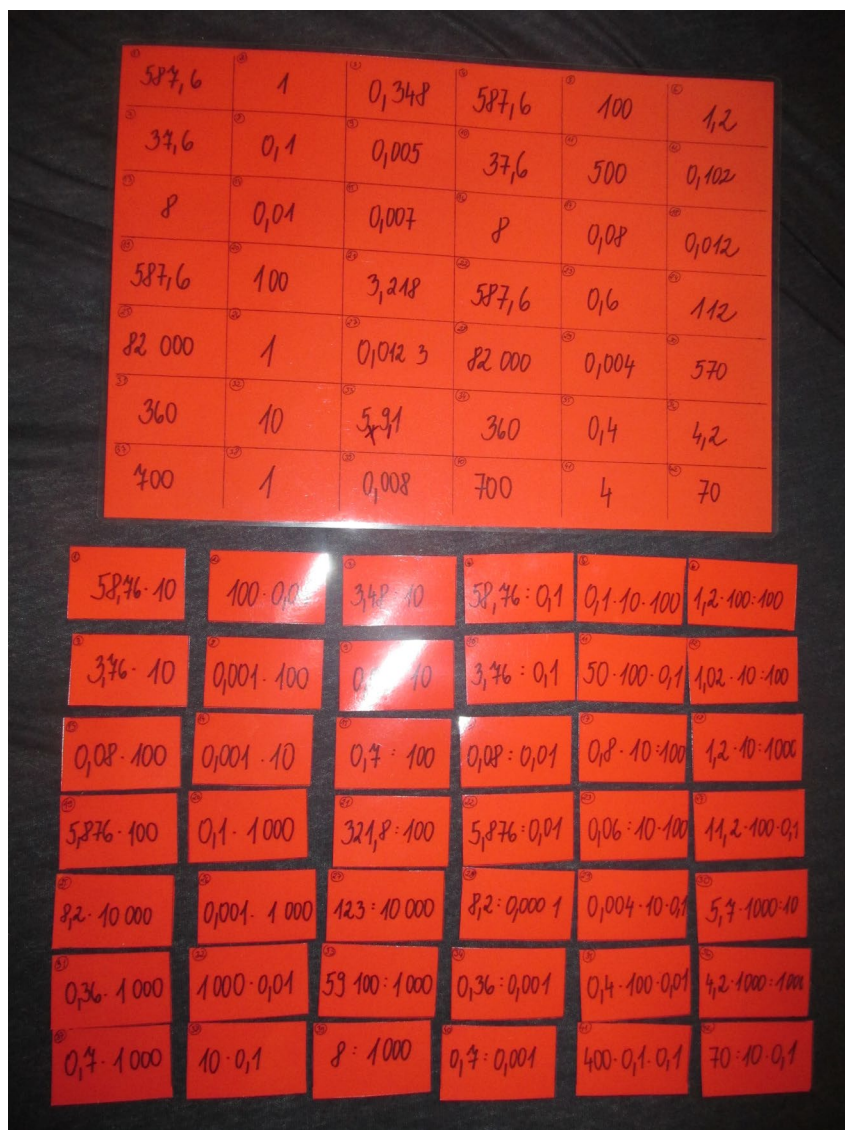 587,6 1 0,348 587,6 100 1,2
37,6 0,1 0,005 37,6 500 0,102
8 0,01 0,007 8 0,08 0,012
587,6 100 3,218 587,6 0,6 112
82 000 1 0,012 3 82 000 0,004 570
360 10 59,1 360 0,4 4,2
700 1 0,008 700 4 70
58,76·10 100·0,0 3,48 10 58,76:0,1 0,1·10·100 1,2·100:100
3,76·10 0,001·100 10 3,76:0,1 50·100·0,1 1,02·10:100
0,08·100 0,001·10 0,7:100 0,08:0,01 0,8·10:100 1,2·10:1000
5,876·100 0,1·1000 321,8:100 5,876:0,01 0,06:10·100 11,2·100·0,1
8,2·10 000 0,001·1 000 123:10 000 8,2:0,000 1 0,004·10·0,1 5,7·1000:10
0,36·1 000 1 000·0,01 59 100:1 000 0,36:0,001 0,4·100·0,01 4,2·1000:1000
0,7·1 000 10·0,1 8:1 000 0,7:0,001 400·0,1·0,1 70:10·0,1